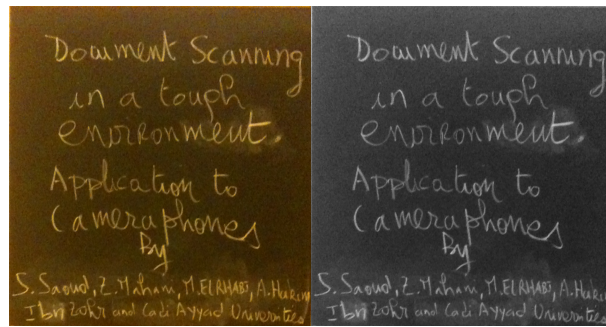 Document Scanning
in a tough
environment.
Application to
Cameraphones
By
S. Saoud, Z. Mahani, M. ELRHABI, A. Hakim
Ibn Zohr and Cadi Ayyad Universities
Document Scanning
in a tough
environment.
Application to
Cameraphones
By
S. Saoud, Z. Mahani, M. ELRHABI, A. Hakim
Ibn Zohr and Cadi Ayyad Universities